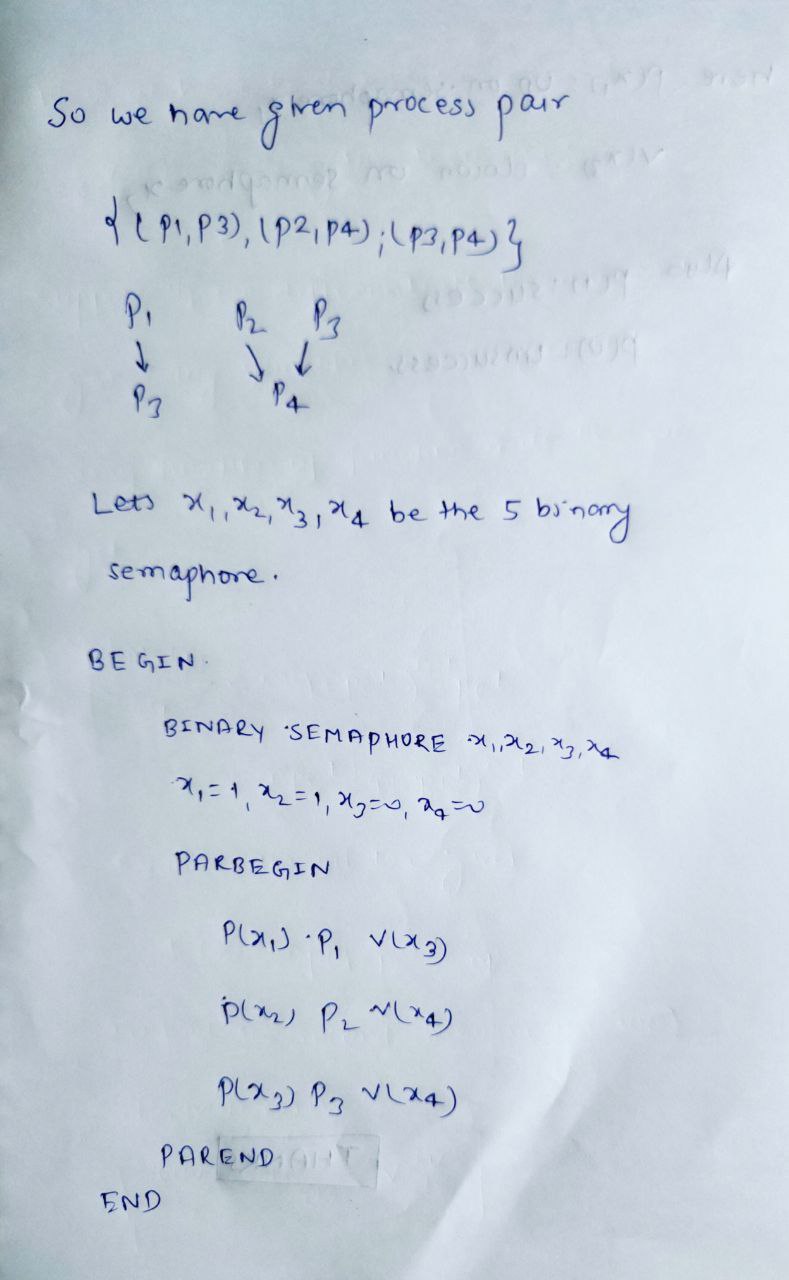 So we have given process pair
{(P1,P3), (P2,P4); (P3,P4)}
P₁ P₂ P₃
↓ ↘ ↙
P₃ P₄
Lets x₁, x₂, x₃, x₄ be the 5 binary
semaphore.
BEGIN
BINARY SEMAPHORE x₁, x₂, x₃, x₄
x₁=1, x₂=1, x₃=0, x₄=0
PARBEGIN
P(x₁) P₁ V(x₃)
P(x₂) P₂ V(x₄)
P(x₃) P₃ V(x₄)
PAREND
END